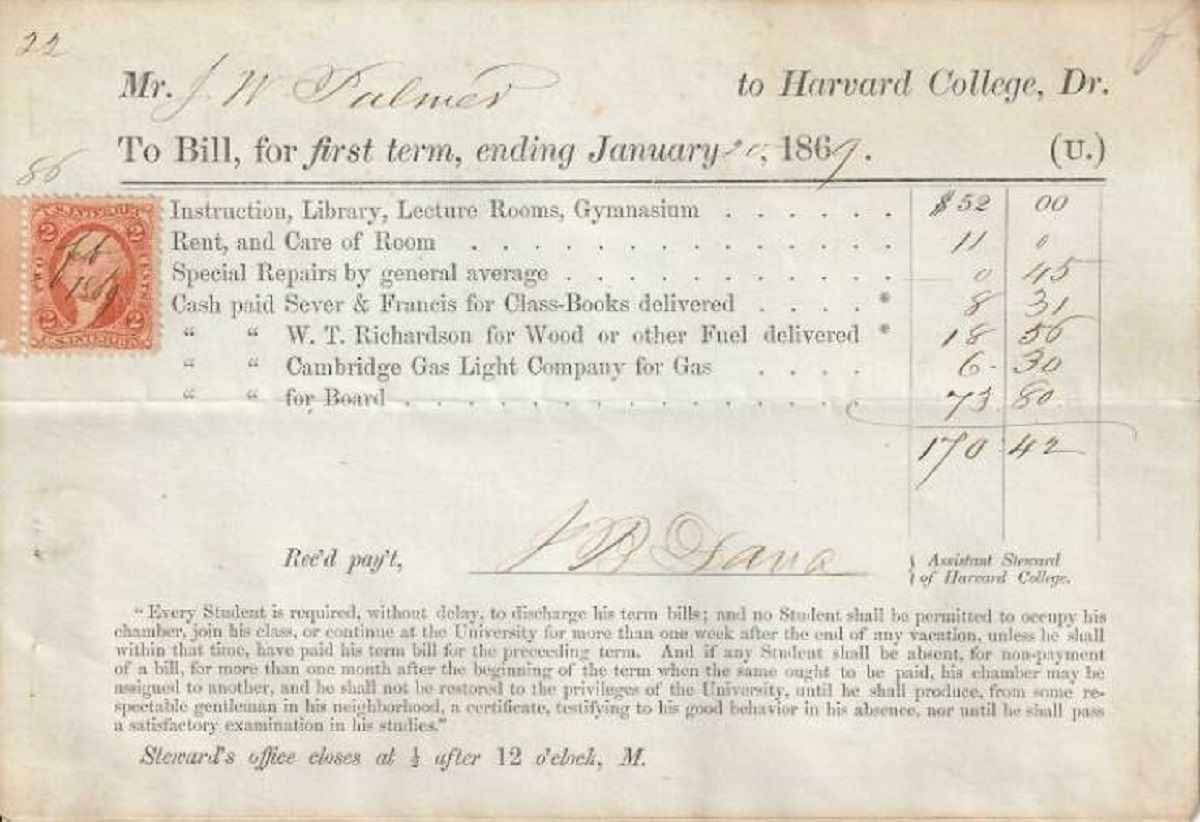 22
Mr. J. W. Palmer to Harvard College, Dr.
86
To Bill, for first term, ending January 20, 1869. (U.)
Instruction, Library, Lecture Rooms, Gymnasium . . . . . . $52 00
Rent, and Care of Room . . . . . . . . . . . . . . 11 0
Special Repairs by general average . . . . . . . . . . . 0 45
Cash paid Sever & Francis for Class-Books delivered . . . . * 8 31
“ “ W. T. Richardson for Wood or other Fuel delivered * 18 56
“ “ Cambridge Gas Light Company for Gas . . . . 6 30
“ “ for Board . . . . . . . . . . . . . . . . 73 80
170 42
U.S. INTER. REV.
2 2
TWO CENTS
Feb
1869
2 2
U.S. INTER. REV.
Rec'd pay't, J B Dana { Assistant Steward
of Harvard College.
“Every Student is required, without delay, to discharge his term bills; and no Student shall be permitted to occupy his
chamber, join his class, or continue at the University for more than one week after the end of any vacation, unless he shall
within that time, have paid his term bill for the preceeding term. And if any Student shall be absent, for non-payment
of a bill, for more than one month after the beginning of the term when the same ought to be paid, his chamber may be
assigned to another, and he shall not be restored to the privileges of the University, until he shall produce, from some re-
spectable gentleman in his neighborhood, a certificate, testifying to his good behavior in his absence, nor until he shall pass
a satisfactory examination in his studies.”
Steward's office closes at ½ after 12 o'clock, M.